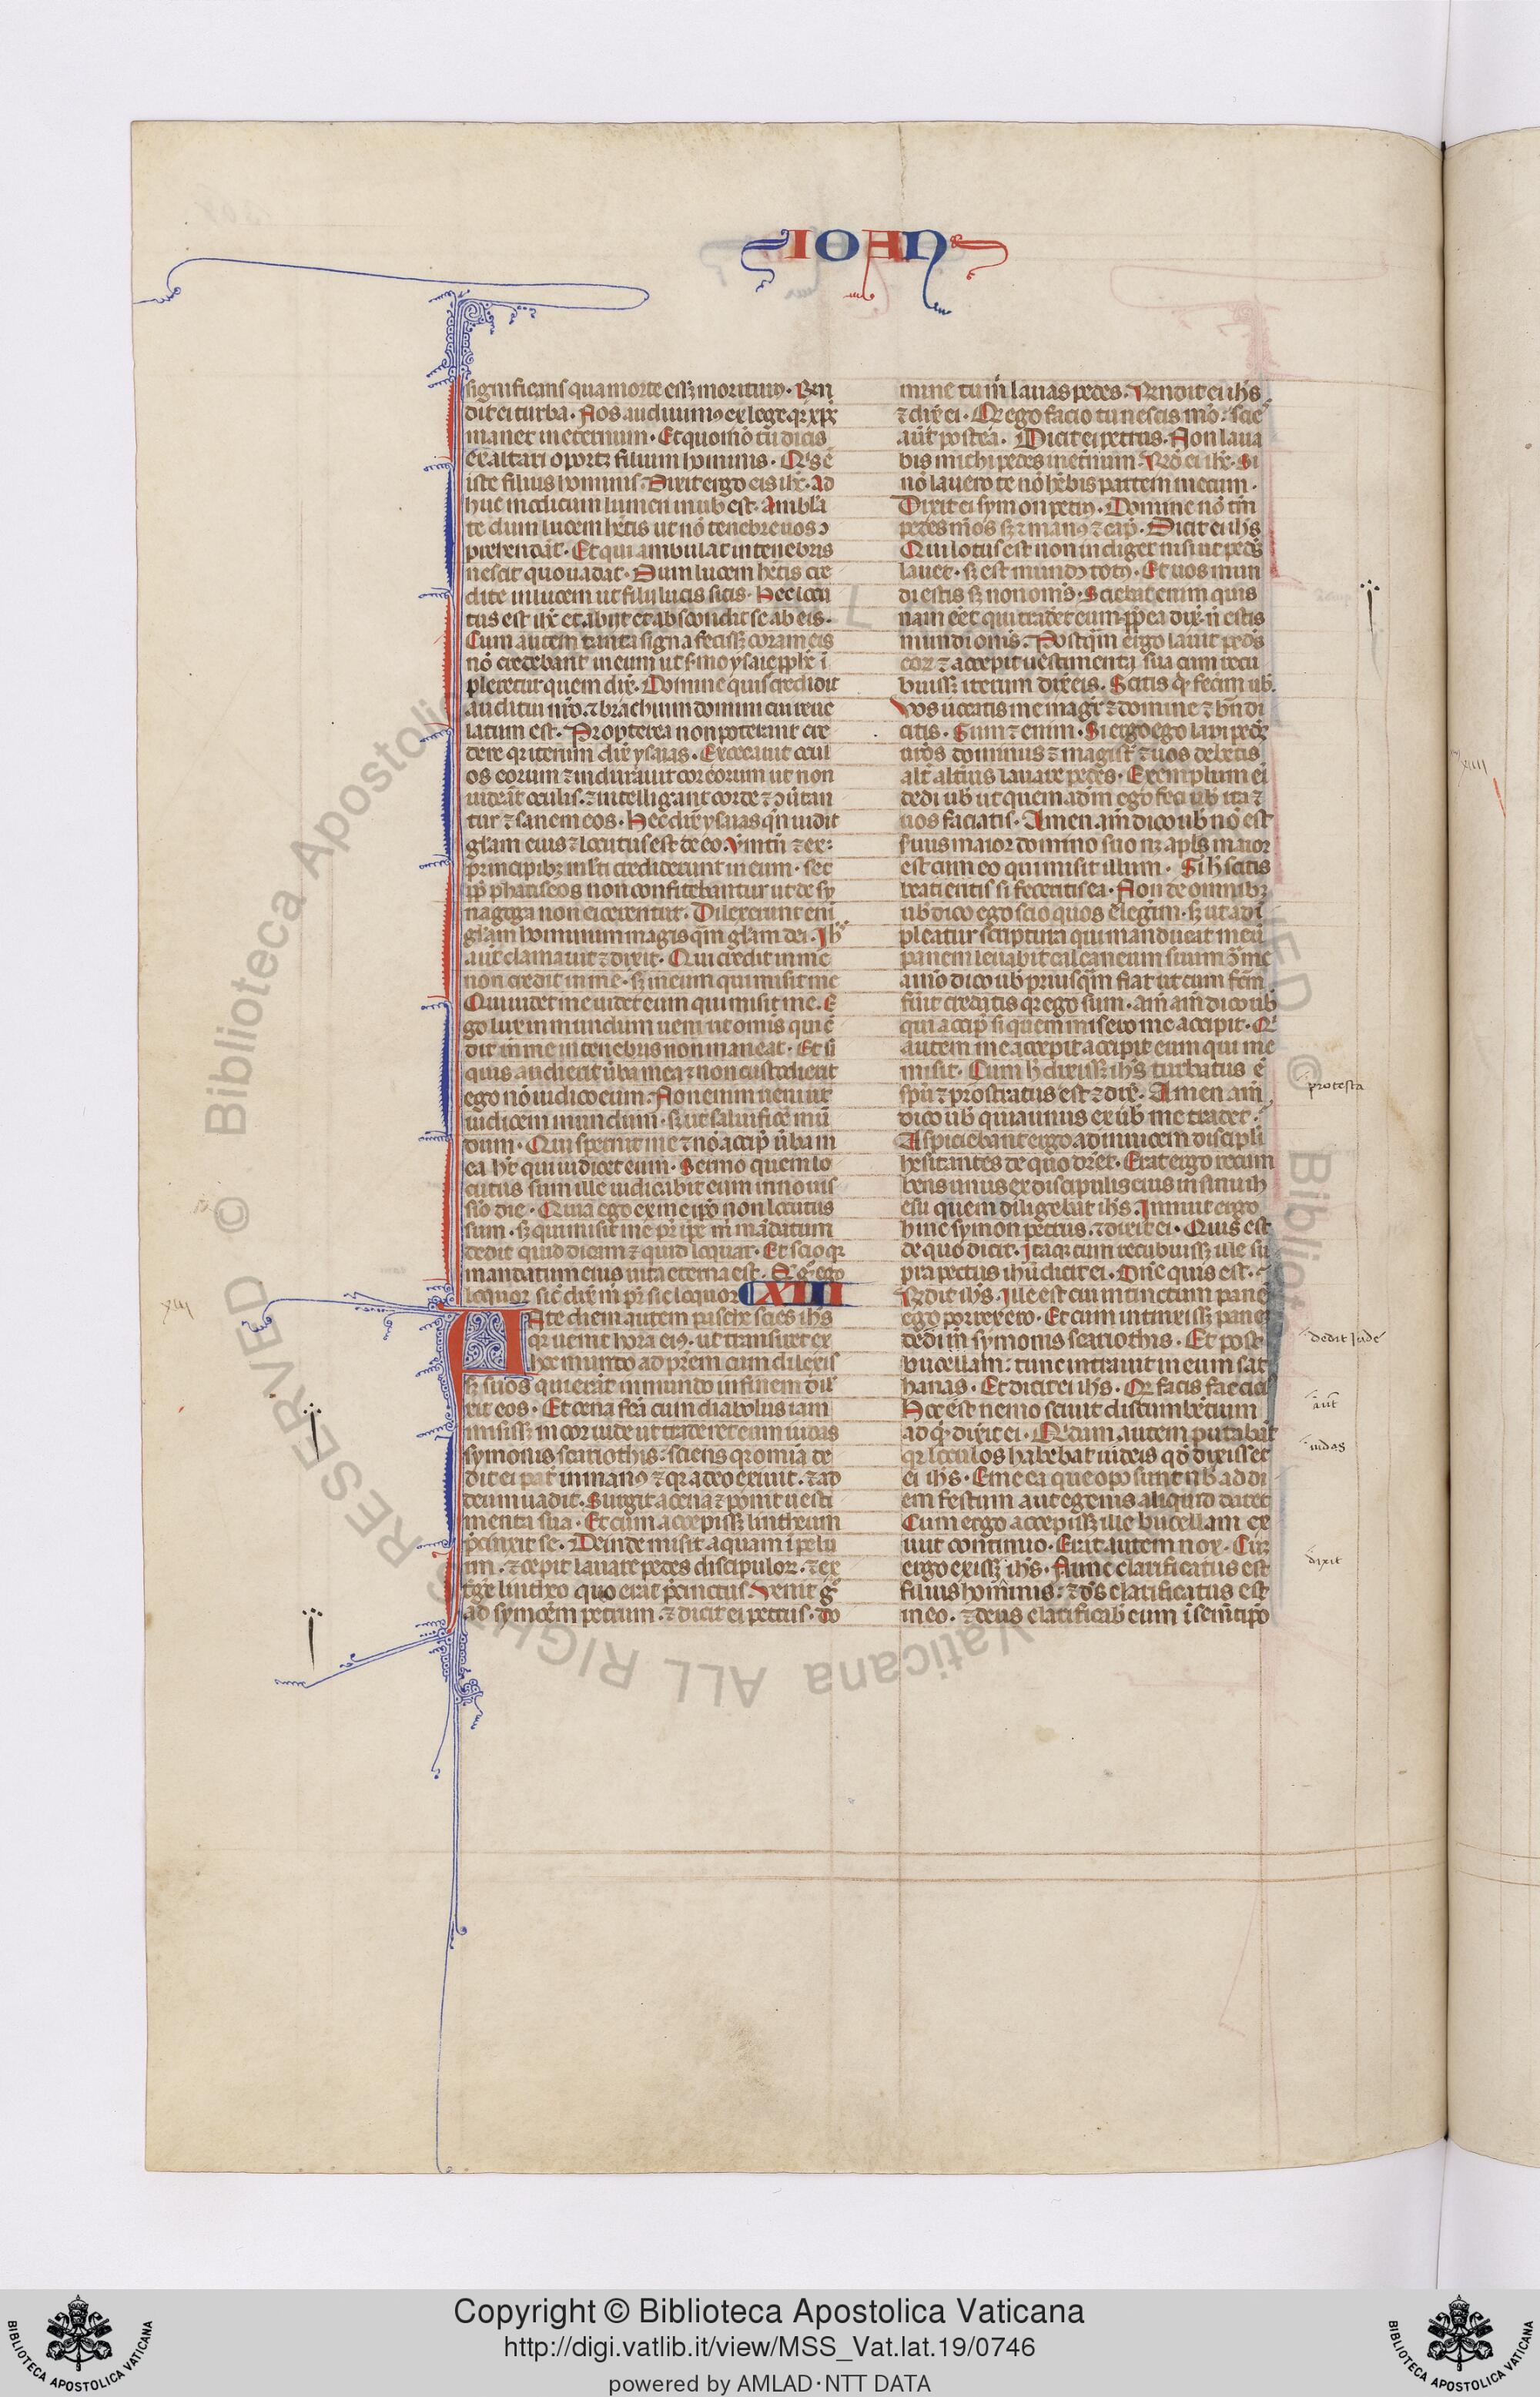 IOAN
significans qua morte eſſꝫ moriturꝰ. Rñ
dit ei turba. Nos audiuimꝰ ex lege qꝛ xp̄c
manet in eternum. Et quomō tu dicis
Exaltari oportꝫ filium hominis. Qͥs ē
iste filius hominis. Dixit ergo eis ih̄c. Ad
huc modicum lumen in uob̄ est. Ambla
te dum lucem hētis ut nō tenebre uos ↄ
prehendāt. Et qui ambulat in tenebris
nescit quo uadat. Dum lucem hētis cre
dite in lucem ut filii lucis sitis. Hec locu
tus est ih̄c et abiit et abscondit se ab eis.
Cum autem tanta signa feciſſꝫ coram eis
nō credebant in eum ut ẜmo ysaie pp̄he ī
pleretur quem dix̄. Domine quis credidit
auditui nr̄o. ⁊ brachium domini cui reue
latum est. Propterea non poterant cre
dere qꝛ iterum dix̄ ysaias. Excecauit ocul
os eorum ⁊ indurauit cor eorum ut non
uideāt oculis. ⁊ intelligant corde ⁊ ↄūtan
tur ⁊ sanem eos. Hec dix̄ ysaias qn̄ uidit
gl̄am eius ⁊ locutus est de eo. Vmtn̄ ⁊ ex
principibꝫ multi crediderunt in eum. set
pp̄ phariseos non confitebantur ut de sy
nagoga non eicerentur. Dilexerunt eni
gl̄am hominum magis qm̄ gl̄am dei. Ih̄c
aut̄ clamauit ⁊ dixit. Qui credit in me
non credit in me. sꝫ in eum qui misit me
Qui uidet me uidet eum qui misit me. E
go lux in mundum ueni ut omis qui c̄
dit in me in tenebris non maneat. Et si
quis audierit ūba mea ⁊ non custodierit
ego nō iudico eum. Non enim ueni ut
iudicem mundum. sꝫ ut saluificē mū
dum. Qui spernit me ⁊ nō accip̄ ūba m
ea h̄t qui iudicet eum. Sermo quem lo
cutus sum ille iudicabit eum in nouis
sīo die. Quia ego ex me ip̄o non locutus
sum. sꝫ qui misit me pr̄ ip̄e m̄ mādatum
dedit quid dicam ⁊ quid loquar. Et scio qꝛ
mandatum eius uita eterna est. Q̄ g̊ ego
loquor sic̄ dix̄ m̄ pr̄ sic loquor. XIII
Ante diem autem pasche sciēs ih̄s
qꝛ uenit hora eiꝰ. ut transeat ex
hoc mundo ad pr̄em cum dilexis
sꝫ suos qui erāt in mundo in finem dil̄
xit eos. Et cena fc̄a cum diabolus iam
misisꝫ in cor iude ut traderet eum iudas
symonis scariothis. sciens qꝛ omia de
dit ei pat̄ in manꝰ ⁊ qꝛ a deo exiuit. ⁊ ad
deum uadit. Surgit a cena ⁊ ponit uesti
menta sua. Et cum accepisꝫ lintheum
p̄cinxit se. Deinde misit aquam ī pelu
im. ⁊ cepit lauare pedes discipuloꝝ. ⁊ ex
t̄ge lintheo quo erat p̄cinctus. Venit g̊
ad symoēm petrum. ⁊ dicit ei petrus. Do
mine tu m̄ lauas pedes. Rndit ei ih̄s
⁊ dix̄ ei. Qͦ ego facio tu nescis mō. scie
aut̄ postea. Dicit ei petrus. Non laua
bis michi pedes in et̄num. Rn̄d ei ih̄c. Si
nō lauero te nō hēbis partem mecum.
Dixit ei symon petrꝰ. Domine nō tm̄
pedes m̄os sꝫ ⁊ manꝰ ⁊ cap̄. Dicit ei ih̄s
Qui lotus est non indiget nisi ut pedes
lauet. sꝫ est mundꝰ totꝰ. Et uos mun
di estis sꝫ non om̄s. Sciebat enim quis
nam eēt qui trādet eum. pp̄ea dix̄. n̄ estis
mundi omīs. Postqm̄ ergo lauit pedes
eoꝝ ⁊ accepit uestimenta sua cum recu
buisꝫ iterum dix̄ eis. Scitis qͥd fecim ub̄.
Vos uocatis me magr̄ ⁊ domine ⁊ bn̄ di
citis. Sum ⁊ enim. Si ergo ego laui pedes
uros dominus ⁊ magist̄ ⁊ uos debetis
alt̄ altīus lauare pedes. Exemplum ei
dedi ub̄ ut quem adm̄ ego feci ub̄ ita ⁊
uos faciatis. Amen am̄ dico ub̄ nō est
ẜuus maior domino suo nꝫ apl̄s maior
est cum eo qui misit illum. Si h̄ scitis
beati eritis si feceritis ea. Non de omnibꝫ
ub̄ dico ego scio quos elegim. sꝫ ut adī
pleatur scriptura qui manducat meū
panem leuabit calcaneum suum ↄ̄ me
amō dico ub̄ priusqm̄ fiat ut cum fcm̄
fūit credatis qꝛ ego sum. am̄ am̄ dico ub̄
qui accip̄ si quem misero me accipit. Qͥ
autem me accepit accipit eum qui me
misit. Cum h̄ dixissꝫ ih̄s turbatus ē
spū ⁊ prostratus est ⁊ dix̄. Amen am̄
dico ub̄ quia unus ex ub̄ me tradet.
Aspiciebant ergo ad inuicem discipli
hesitantes de quo dr̄et. Erat ergo recum
bens unus ex discipulis eius in sinu ih
esu quem diligebat ih̄s. Innuit ergo
hinc symon petrus. ⁊ dixit ei. Quis est
de quo dicit. Itaqꝫ cum recubuissꝫ ille su
pra pectus ihū dicit ei. Dn̄e quis est.
Rn̄dit ih̄s. Ille est cui intinctum pane
ego porrexero. Et cum intinxissꝫ pane
dedim̄ symonis scariothis. Et post
bucellam: tunc intrauit in eum sat
hanas. Et dicit ei ih̄s. Qͦ facis fac cici
Hoc est nemo sciuit discumbētium
ad qͥd dixit ei. Qͥdam autem putabāt
qꝛ loculos habebat iudeis qd̄ dixisset
ei ih̄s. Eme ea que opꝰ sunt ub̄ ad di
em festum aut egenis aliquid daret
Cum ergo accepissꝫ ille bucellam ex
iuit continuo. Erat autem nox. Cū
ergo exissꝫ ih̄s. Nunc clarificatus est
filius hominis. ⁊ ds̄ clarificatus est
in eo. ⁊ deus clarificab̄ eum ī sem̄tip̄o
protesta
dedit Jude
aut̄
iudas
dixit
XIII
XIIII
Copyright © Biblioteca Apostolica Vaticana
http://digi.vatlib.it/view/MSS_Vat.lat.19/0746
powered by AMLAD·NTT DATA
BIBLIOTECA APOSTOLICA VATICANA
BIBLIOTECA APOSTOLICA VATICANA